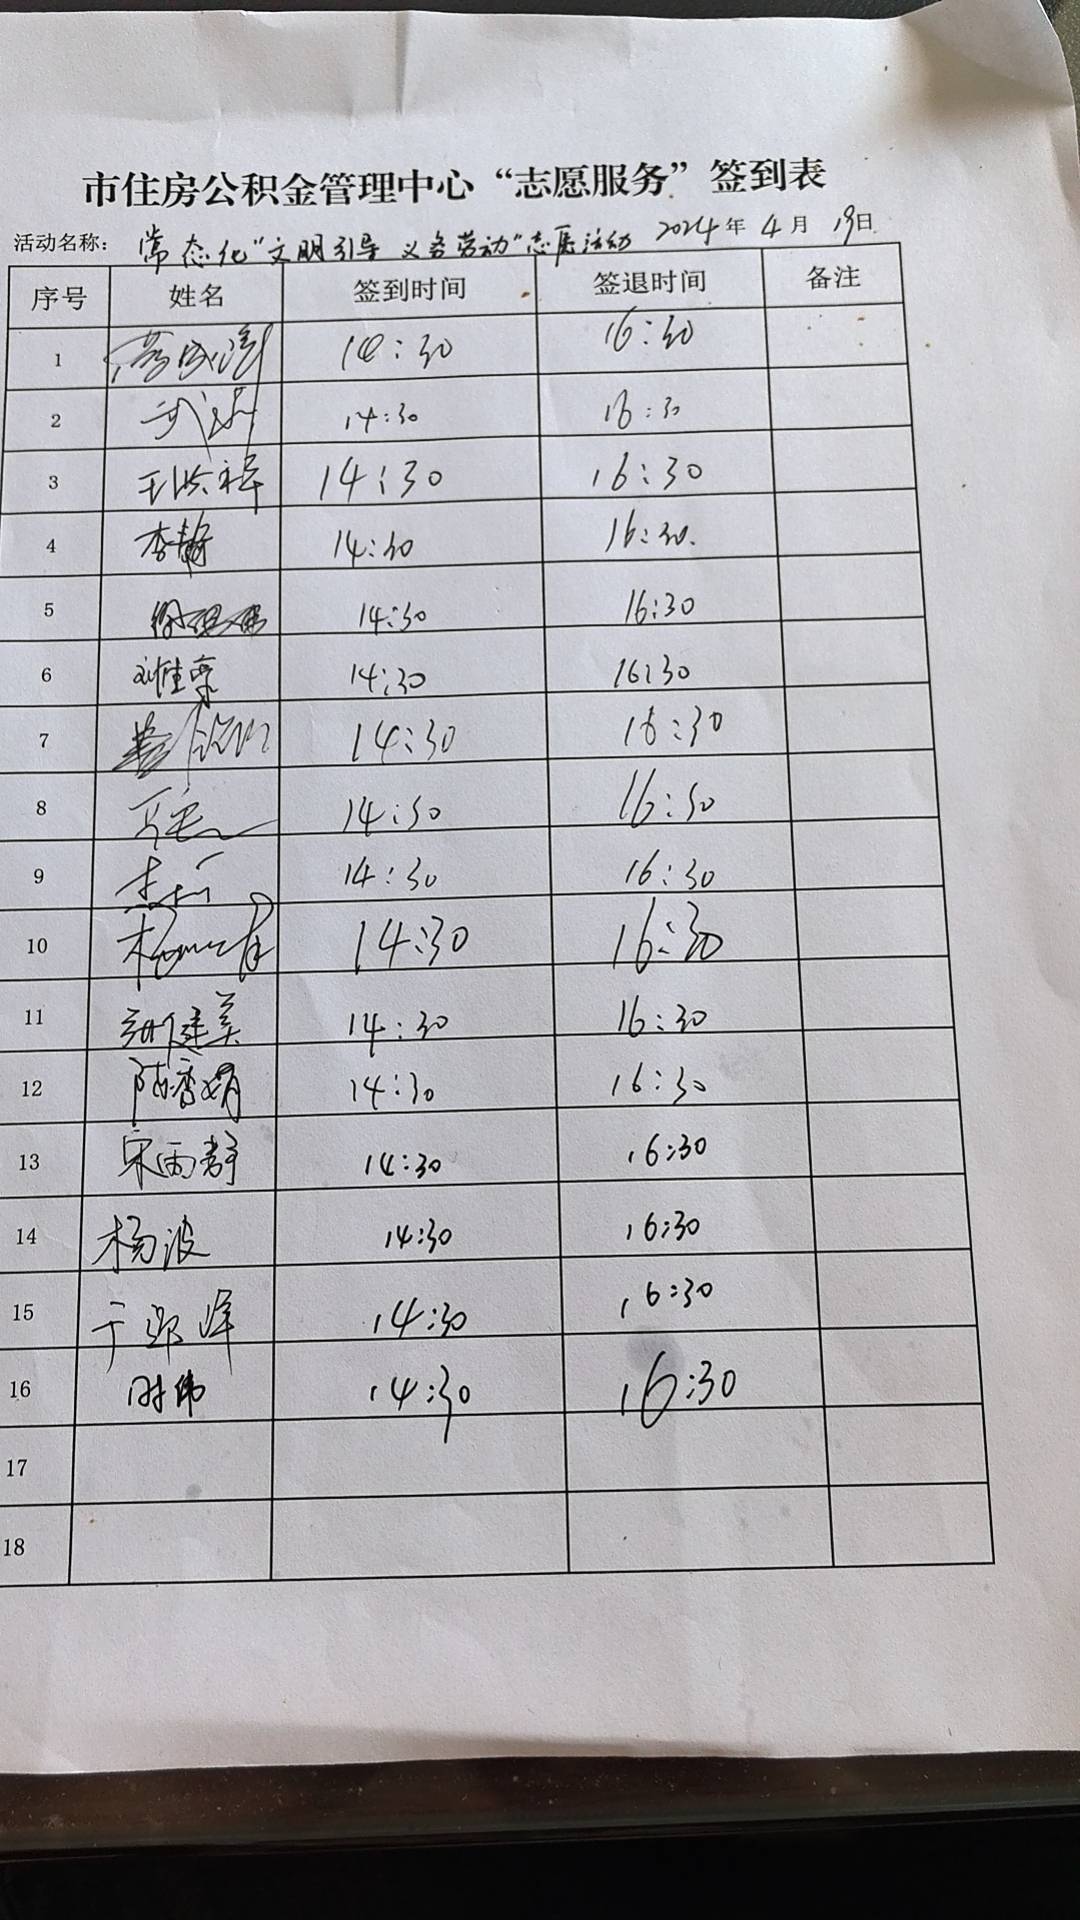 市住房公积金管理中心“志愿服务”签到表
活动名称： 常态化“文明引导 义务劳动”志愿活动 2024年 4月 19日
序号 姓名 签到时间 签退时间 备注
1 14:30 16:30
2 14:30 16:30
3 王洪祥 14:30 16:30
4 李静 14:30 16:30.
5 14:30 16:30
6 14:30 16:30
7 14:30 16:30
8 14:30 16:30
9 14:30 16:30
10 14:30 16:30
11 14:30 16:30
12 陈香娟 14:30 16:30
13 宋雨静 14:30 16:30
14 杨波 14:30 16:30
15 14:30 16:30
16 时伟 14:30 16:30
17
18